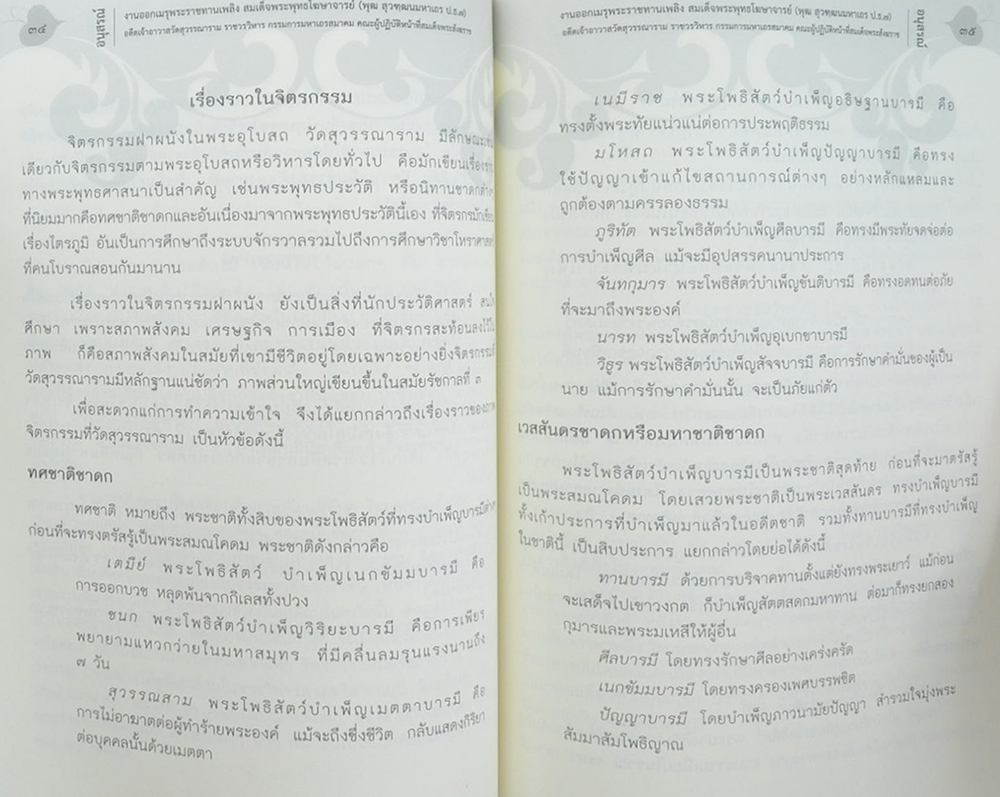 ๓๔
อนุสรณ์
งานออกเมรุพระราชทานเพลิง สมเด็จพระพุทธโฆษาจารย์ (พุฒ สุวฑฺฒนมหาเถร ป.ธ.๗)
อดีตเจ้าอาวาสวัดสุวรรณาราม ราชวรวิหาร กรรมการมหาเถรสมาคม คณะผู้ปฏิบัติหน้าที่สมเด็จพระสังฆราช
เรื่องราวในจิตรกรรม
จิตรกรรมฝาผนังในพระอุโบสถ วัดสุวรรณาราม มีลักษณะ
เดียวกับจิตรกรรมตามพระอุโบสถหรือวิหารโดยทั่วไป คือมักเขียนเรื่องราว
ทางพระพุทธศาสนาเป็นสำคัญ เช่นพระพุทธประวัติ หรือนิทานชาดกต่าง
ที่นิยมมากคือทศชาติชาดกและอันเนื่องมาจากพระพุทธประวัตินี้เอง ที่จิตรกรมักเขียน
เรื่องไตรภูมิ อันเป็นการศึกษาถึงระบบจักรวาลรวมไปถึงการศึกษาวิชาโหราศาสตร์
ที่คนโบราณสอนกันมานาน
เรื่องราวในจิตรกรรมฝาผนัง ยังเป็นสิ่งที่นักประวัติศาสตร์ สนใจ
ศึกษา เพราะสภาพสังคม เศรษฐกิจ การเมือง ที่จิตรกรสะท้อนลงไว้ใน
ภาพ ก็คือสภาพสังคมในสมัยที่เขามีชีวิตอยู่โดยเฉพาะอย่างยิ่งจิตรกรรมที่
วัดสุวรรณารามมีหลักฐานแน่ชัดว่า ภาพส่วนใหญ่เขียนขึ้นในสมัยรัชกาลที่ ๓
เพื่อสะดวกแก่การทำความเข้าใจ จึงได้แยกกล่าวถึงเรื่องราวของภาพ
จิตรกรรมที่วัดสุวรรณาราม เป็นหัวข้อดังนี้
ทศชาติชาดก
ทศชาติ หมายถึง พระชาติทั้งสิบของพระโพธิสัตว์ที่ทรงบำเพ็ญบารมีต่างๆ
ก่อนที่จะทรงตรัสรู้เป็นพระสมณโคดม พระชาติดังกล่าวคือ
เตมีย์ พระโพธิสัตว์ บำเพ็ญเนกขัมมบารมี คือ
การออกบวช หลุดพ้นจากกิเลสทั้งปวง
ชนก พระโพธิสัตว์บำเพ็ญวิริยะบารมี คือการเพียร
พยายามแหวกว่ายในมหาสมุทร ที่มีคลื่นลมรุนแรงนานถึง
๗ วัน
สุวรรณสาม พระโพธิสัตว์บำเพ็ญเมตตาบารมี คือ
การไม่อาฆาตต่อผู้ทำร้ายพระองค์ แม้จะถึงซึ่งชีวิต กลับแสดงกิริยา
ต่อบุคคลนั้นด้วยเมตตา
งานออกเมรุพระราชทานเพลิง สมเด็จพระพุทธโฆษาจารย์ (พุฒ สุวฑฺฒนมหาเถร ป.ธ.๗)
อดีตเจ้าอาวาสวัดสุวรรณาราม ราชวรวิหาร กรรมการมหาเถรสมาคม คณะผู้ปฏิบัติหน้าที่สมเด็จพระสังฆราช
อนุสรณ์
๓๕
เนมีราช พระโพธิสัตว์บำเพ็ญอธิษฐานบารมี คือ
ทรงตั้งพระทัยแน่วแน่ต่อการประพฤติธรรม
มโหสถ พระโพธิสัตว์บำเพ็ญปัญญาบารมี คือทรง
ใช้ปัญญาเข้าแก้ไขสถานการณ์ต่างๆ อย่างหลักแหลมและ
ถูกต้องตามครรลองธรรม
ภูริทัต พระโพธิสัตว์บำเพ็ญศีลบารมี คือทรงมีพระทัยจดจ่อต่อ
การบำเพ็ญศีล แม้จะมีอุปสรรคนานาประการ
จันทกุมาร พระโพธิสัตว์บำเพ็ญขันติบารมี คือทรงอดทนต่อภัย
ที่จะมาถึงพระองค์
นารท พระโพธิสัตว์บำเพ็ญอุเบกขาบารมี
วิธูร พระโพธิสัตว์บำเพ็ญสัจจบารมี คือการรักษาคำมั่นของผู้เป็น
นาย แม้การรักษาคำมั่นนั้น จะเป็นภัยแก่ตัว
เวสสันดรชาดกหรือมหาชาติชาดก
พระโพธิสัตว์บำเพ็ญบารมีเป็นพระชาติสุดท้าย ก่อนที่จะมาตรัสรู้
เป็นพระสมณโคดม โดยเสวยพระชาติเป็นพระเวสสันดร ทรงบำเพ็ญบารมี
ทั้งเก้าประการที่บำเพ็ญมาแล้วในอดีตชาติ รวมทั้งทานบารมีที่ทรงบำเพ็ญ
ในชาตินี้ เป็นสิบประการ แยกกล่าวโดยย่อได้ดังนี้
ทานบารมี ด้วยการบริจาคทานตั้งแต่ยังทรงพระเยาว์ แม้ก่อน
จะเสด็จไปเขาวงกต ก็บำเพ็ญสัตตสดกมหาทาน ต่อมาก็ทรงยกสอง
กุมารและพระมเหสีให้ผู้อื่น
ศีลบารมี โดยทรงรักษาศีลอย่างเคร่งครัด
เนกขัมมบารมี โดยทรงครองเพศบรรพชิต
ปัญญาบารมี โดยบำเพ็ญภาวนามัยปัญญา สำรวมใจมุ่งพระ
สัมมาสัมโพธิญาณ